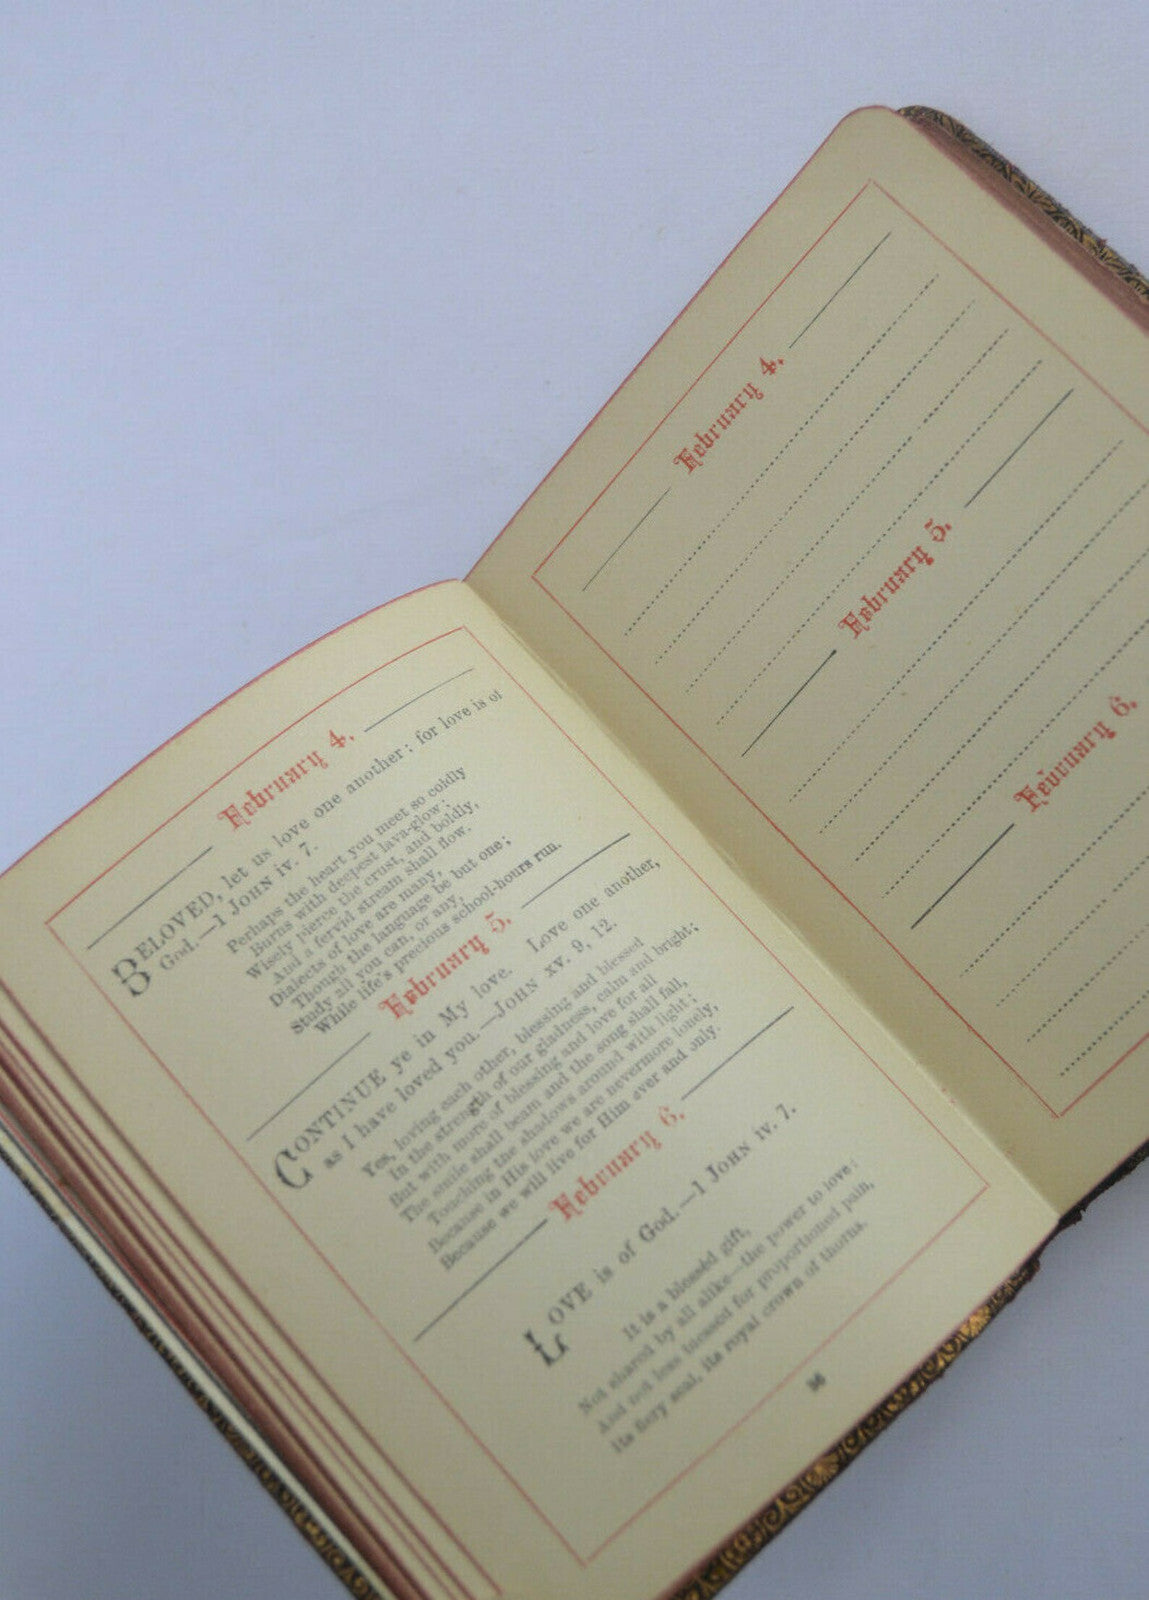 February 4.
BELOVED, let us love one another; for love is of
God.—1 JOHN iv. 7.
Perhaps the heart you meet so coldly
Burns with deepest lava-glow;
Wisely pierce the crust, and boldly,
And a fervid stream shall flow.
Dialects of love are many,
Though the language be but one;
Study all you can, or any,
While life's precious school-hours run.
February 5.
CONTINUE ye in My love. Love one another,
as I have loved you.—JOHN xv. 9, 12.
Yes, loving each other, blessing and blessed
In the strength of our gladness, calm and bright;
But with more of blessing and love for all
The smile shall beam and the song shall fall,
Touching the shadows around with light;
Because in His love we are nevermore lonely,
Because we will live for Him ever and only.
February 6.
LOVE is of God.—1 JOHN iv. 7.
It is a blessèd gift,
Not shared by all alike—the power to love;
And not less blessed for proportioned pain,
Its fiery seal, its royal crown of thorns.
36
February 4.
February 5.
February 6.